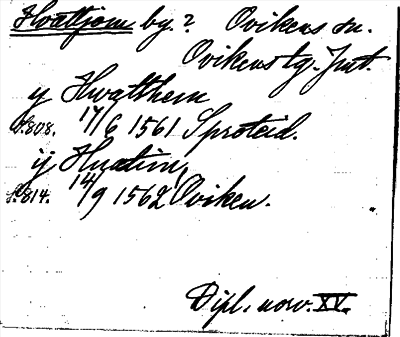 Hvattjom by? Ovikens sn.
Ovikens tg. Jmt.
ij Hwatthem
S. 808. 17/6 1561 Sproteid.
ij Huatim,
S. 814. 14/9 1562 Oviken.
Dipl. norv. XV.